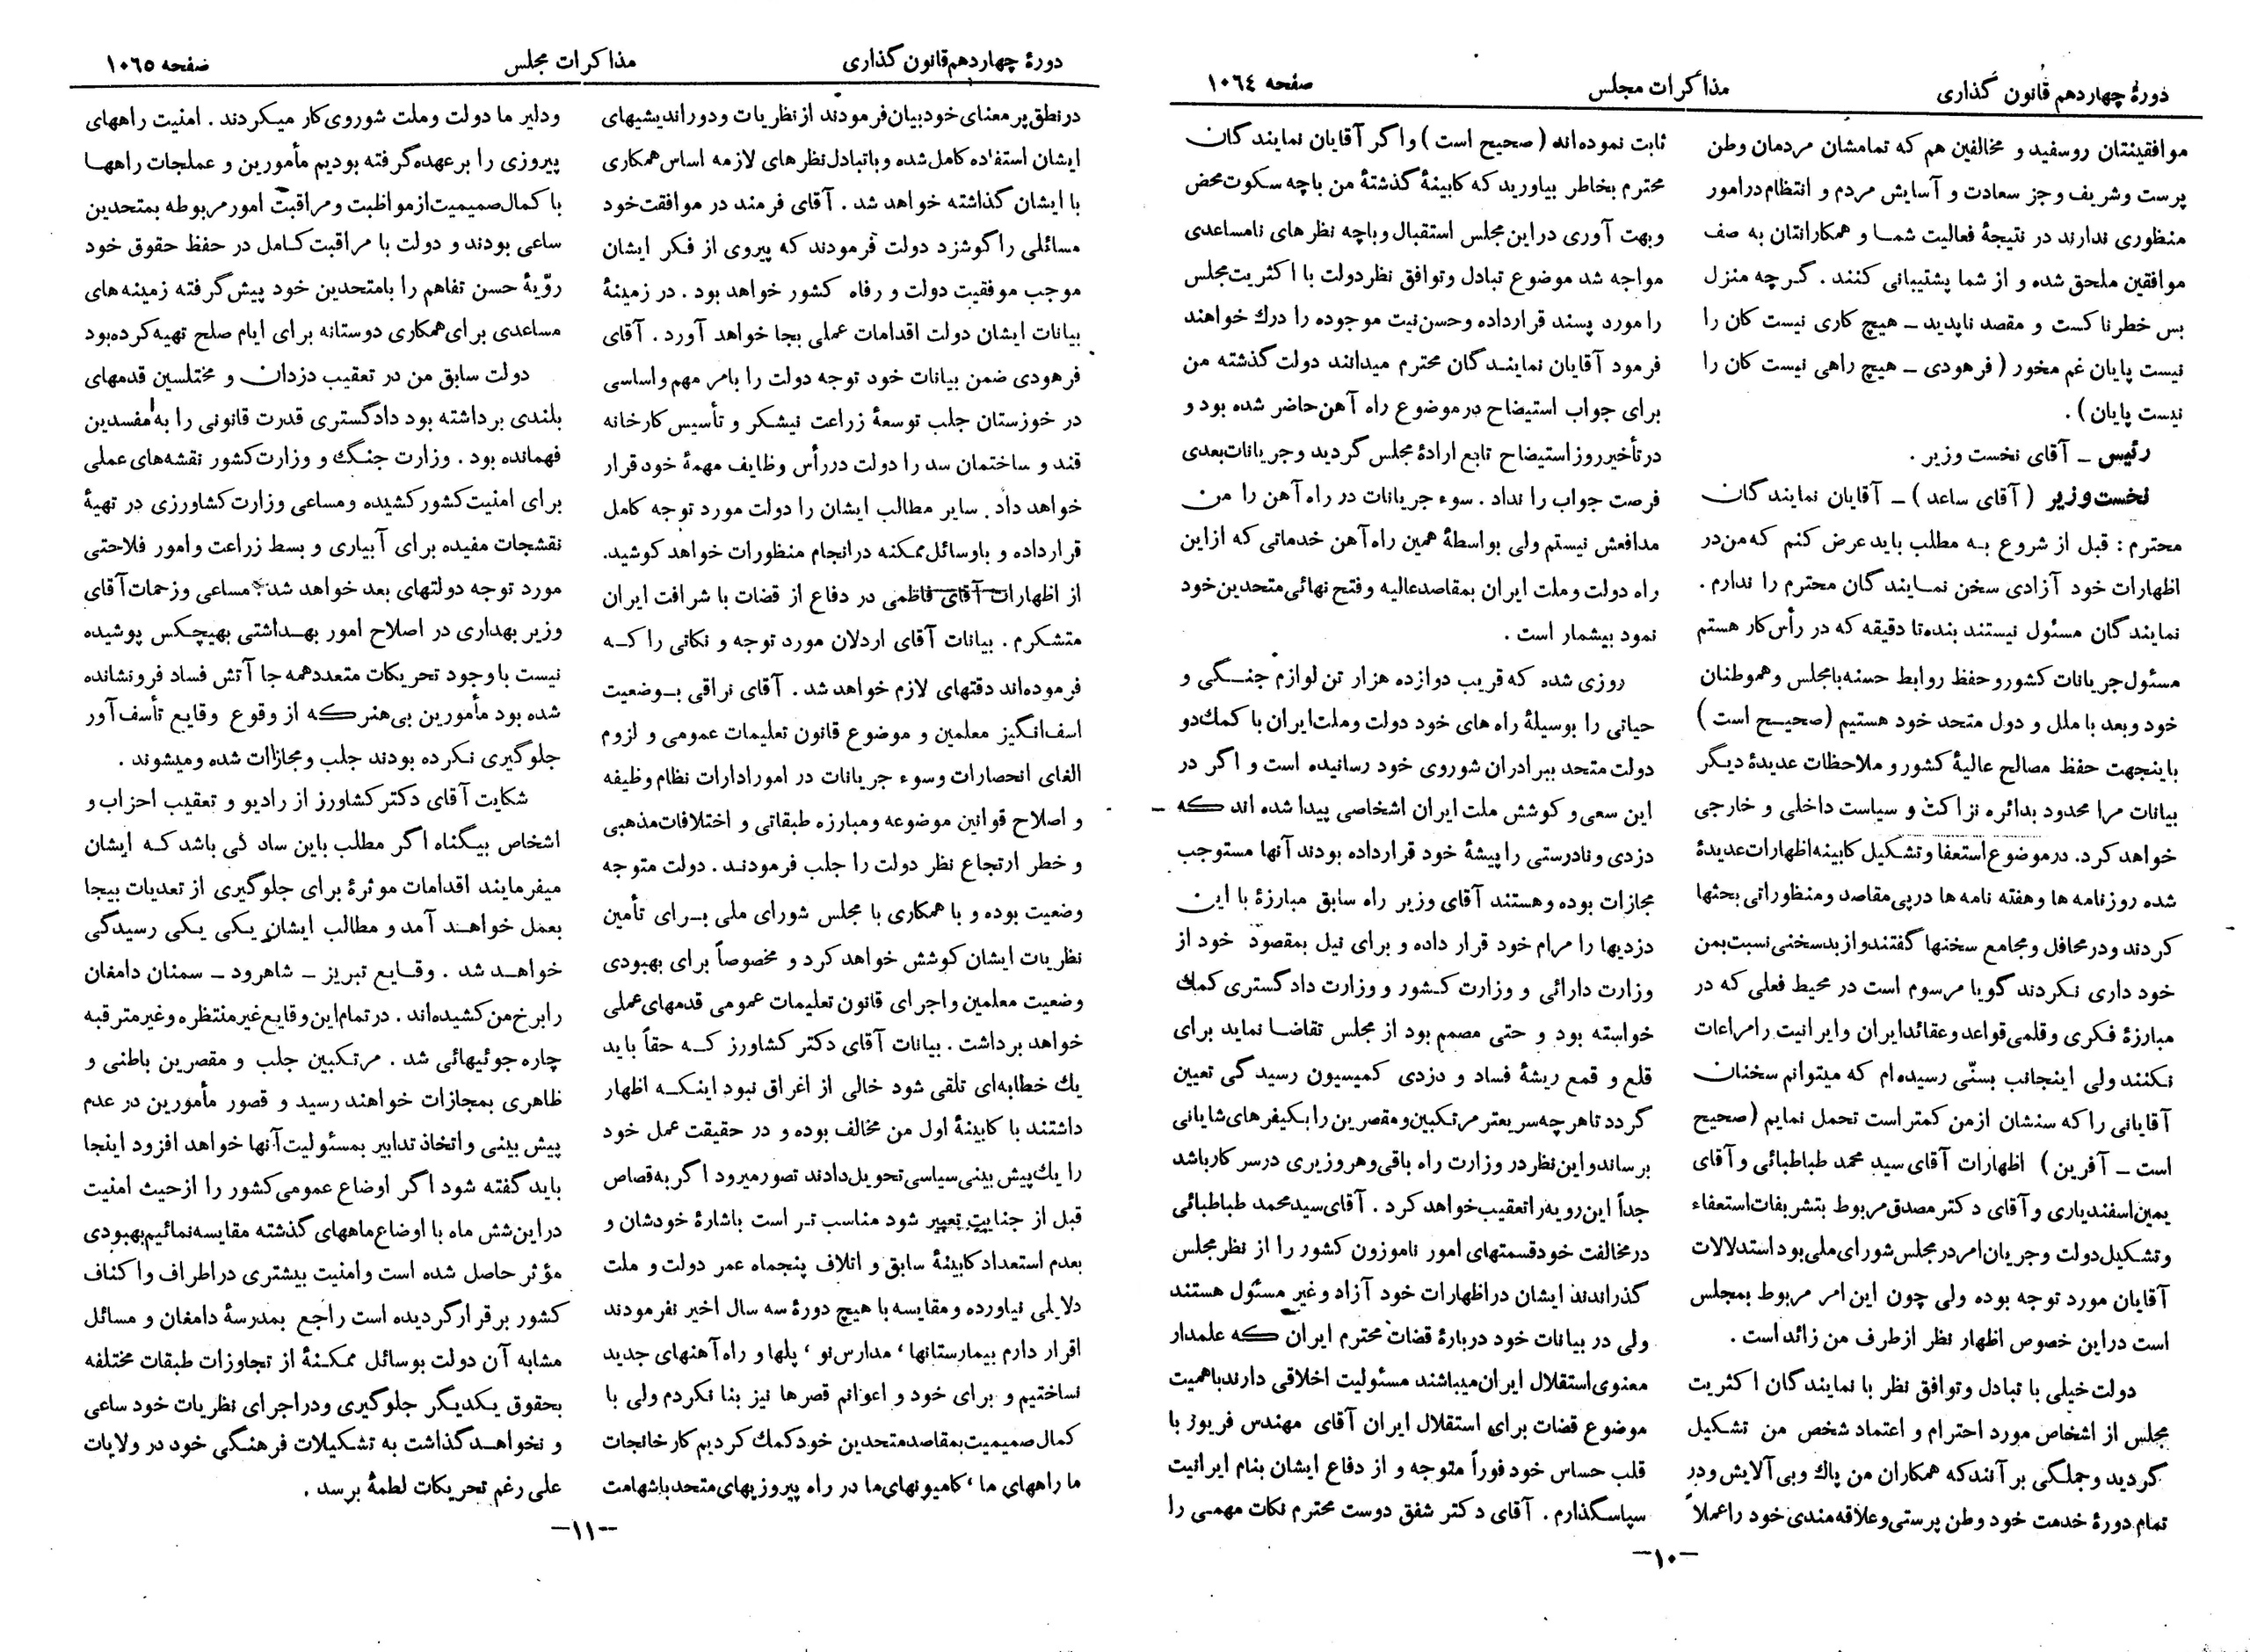 دورهٔ چهاردهم قانون گذاری
مذاکرات مجلس
صفحه ۱۰۶۴
موافقینتان روسفید و مخالفین هم که تمامشان مردمان وطن
پرست وشریف وجز سعادت و آسایش مردم و انتظام درامور
منظوری ندارند در نتیجهٔ فعالیت شما و همکارانتان به صف
موافقین ملحق شده و از شما پشتیبانی کنند . گرچه منزل
بس خطرناکست و مقصد ناپدید ــ هیچ کاری نیست کان را
نیست پایان غم مخور ( فرهودی ــ هیچ راهی نیست کان را
نیست پایان ) .
رئیس ــ آقای نخست وزیر .
نخست وزیر ( آقای ساعد ) ــ آقایان نمایندگان
محترم : قبل از شروع به مطلب باید عرض کنم که من در
اظهارات خود آزادی سخن نمایندگان محترم را ندارم .
نمایندگان مسئول نیستند بنده تا دقیقه که در رأس کار هستم
مسئول جریانات کشور و حفظ روابط حسنه بامجلس و هموطنان
خود و بعد با ملل و دول متحد خود هستیم ( صحیح است )
باینجهت حفظ مصالح عالیهٔ کشور و ملاحظات عدیدهٔ دیگر
بیانات مرا محدود بدائره نزاکت و سیاست داخلی و خارجی
خواهد کرد. در موضوع استعفا و تشکیل کابینه اظهارات عدیدهٔ
شده روزنامه ها و هفته نامه ها درپی مقاصد و منظوراتی بحثها
کردند و در محافل و مجامع سخنها گفتند و از بدسخنی نسبت بمن
خود داری نکردند گویا مرسوم است در محیط فعلی که در
مبارزهٔ فکری و قلمی قواعد و عقائد ایران و ایرانیت را مراعات
نکنند ولی اینجانب بسنّی رسیده ام که میتوانم سخنان
آقایانی را که سنشان از من کمتر است تحمل نمایم ( صحیح
است ــ آفرین ) اظهارات آقای سید محمد طباطبائی و آقای
یمین اسفندیاری و آقای دکتر مصدق مربوط بتشریفات استعفاء
و تشکیل دولت و جریان امر در مجلس شورای ملی بود استدلالات
آقایان مورد توجه بوده ولی چون این امر مربوط بمجلس
است در این خصوص اظهار نظر از طرف من زائد است .
دولت خیلی با تبادل و توافق نظر با نمایندگان اکثریت
مجلس از اشخاص مورد احترام و اعتماد شخص من تشکیل
گردید و جملگی برآنند که همکاران من پاك و بی آلایش و در
تمام دورهٔ خدمت خود وطن پرستی و علاقه مندی خود را عملاً
ثابت نموده اند ( صحیح است ) واگر آقایان نمایندگان
محترم بخاطر بیاورید که کابینهٔ گذشتهٔ من باچه سکوت محض
و بهت آوری در این مجلس استقبال و باچه نظرهای نامساعدی
مواجه شد موضوع تبادل و توافق نظر دولت با اکثریت مجلس
را مورد پسند قرارداده و حسن نیت موجوده را درك خواهند
فرمود آقایان نمایندگان محترم میدانند دولت گذشته من
برای جواب استیضاح در موضوع راه آهن حاضر شده بود و
در تأخیر روز استیضاح تابع ارادهٔ مجلس گردید و جریانات بعدی
فرصت جواب را نداد . سوء جریانات در راه آهن را من
مدافعش نیستم ولی بواسطهٔ همین راه آهن خدماتی که از این
راه دولت و ملت ایران بمقاصد عالیه و فتح نهائی متحدین خود
نمود بیشمار است .
روزی شده که قریب دوازده هزار تن لوازم جنگی و
حیاتی را بوسیلهٔ راه های خود دولت و ملت ایران با کمك دو
دولت متحد ببرادران شوروی خود رسانیده است و اگر در
این سعی و کوشش ملت ایران اشخاصی پیدا شده اند که
دزدی و نادرستی را پیشهٔ خود قرارداده بودند آنها مستوجب
مجازات بوده و هستند آقای وزیر راه سابق مبارزهٔ با این
دزدیها را مرام خود قرار داده و برای نیل بمقصود خود از
وزارت دارائی و وزارت کشور و وزارت دادگستری کمك
خواسته بود و حتی مصمم بود از مجلس تقاضا نماید برای
قلع و قمع ریشهٔ فساد و دزدی کمیسیون رسیدگی تعیین
گردد تا هر چه سریعتر مرتکبین و مقصرین را بکیفرهای شایانی
برساند و این نظر در وزارت راه باقی و هر وزیری در سر کار باشد
جداً این رویه را تعقیب خواهد کرد . آقای سید محمد طباطبائی
در مخالفت خود قسمتهای امور ناموزون کشور را از نظر مجلس
گذراندند ایشان در اظهارات خود آزاد و غیر مسئول هستند
ولی در بیانات خود دربارهٔ قضات محترم ایران که علمدار
معنوی استقلال ایران میباشند مسئولیت اخلاقی دارند باهمیت
موضوع قضات برای استقلال ایران آقای مهندس فریور با
قلب حساس خود فوراً متوجه و از دفاع ایشان بنام ایرانیت
سپاسگذارم . آقای دکتر شفق دوست محترم نکات مهمی را
ــ۱۰ــ
دورهٔ چهاردهم قانون گذاری
مذاکرات مجلس
صفحه ۱۰۶۵
در نطق پر معنای خود بیان فرمودند از نظریات و دوراندیشیهای
ایشان استفاده کامل شده و با تبادل نظرهای لازمه اساس همکاری
با ایشان گذاشته خواهد شد . آقای فرمند در موافقت خود
مسائلی را گوشزد دولت فرمودند که پیروی از فکر ایشان
موجب موفقیت دولت و رفاه کشور خواهد بود . در زمینهٔ
بیانات ایشان دولت اقدامات عملی بجا خواهد آورد . آقای
فرهودی ضمن بیانات خود توجه دولت را بامر مهم و اساسی
در خوزستان جلب توسعهٔ زراعت نیشکر و تأسیس کارخانه
قند و ساختمان سد را دولت در رأس وظایف مهمهٔ خود قرار
خواهد داد . سایر مطالب ایشان را دولت مورد توجه کامل
قرارداده و با وسائل ممکنه در انجام منظورات خواهد کوشید.
از اظهارات آقای فاطمی در دفاع از قضات با شرافت ایران
متشکرم . بیانات آقای اردلان مورد توجه و نکاتی را که
فرموده اند دقتهای لازم خواهد شد . آقای نراقی بوضعیت
اسف انگیز معلمین و موضوع قانون تعلیمات عمومی و لزوم
الغای انحصارات و سوء جریانات در امور ادارات نظام وظیفه
و اصلاح قوانین موضوعه و مبارزه طبقاتی و اختلافات مذهبی
و خطر ارتجاع نظر دولت را جلب فرمودند . دولت متوجه
وضعیت بوده و با همکاری با مجلس شورای ملی برای تأمین
نظریات ایشان کوشش خواهد کرد و مخصوصاً برای بهبودی
وضعیت معلمین و اجرای قانون تعلیمات عمومی قدمهای عملی
خواهد برداشت . بیانات آقای دکتر کشاورز که حقاً باید
یك خطابه ای تلقی شود خالی از اغراق نبود اینکه اظهار
داشتند با کابینهٔ اول من مخالف بوده و در حقیقت عمل خود
را یك پیش بینی سیاسی تحویل دادند تصور میرود اگر به قصاص
قبل از جنایت تعبیر شود مناسب تر است باشارهٔ خودشان و
بعدم استعداد کابینهٔ سابق و اتلاف پنجماه عمر دولت و ملت
دلایلی نیاورده و مقایسه با هیچ دورهٔ سه سال اخیر نفرمودند
اقرار دارم بیمارستانها ، مدارس نو ، پلها و راه آهنهای جدید
نساختیم و برای خود و اعوانم قصرها نیز بنا نکردم ولی با
کمال صمیمیت بمقاصد متحدین خود کمك کردیم کارخانجات
ما راههای ما ، کامیونهای ما در راه پیروزیهای متحد باشهامت
ودلیر ما دولت و ملت شوروی کار میکردند . امنیت راههای
پیروزی را بر عهده گرفته بودیم مأمورین و عملجات راهها
با کمال صمیمیت از مواظبت و مراقبت امور مربوطه بمتحدین
ساعی بودند و دولت با مراقبت کامل در حفظ حقوق خود
رویّهٔ حسن تفاهم را بامتحدین خود پیش گرفته زمینه های
مساعدی برای همکاری دوستانه برای ایام صلح تهیه کرده بود
دولت سابق من در تعقیب دزدان و مختلسین قدمهای
بلندی برداشته بود دادگستری قدرت قانونی را به مفسدین
فهمانده بود . وزارت جنگ و وزارت کشور نقشه های عملی
برای امنیت کشور کشیده و مساعی وزارت کشاورزی در تهیهٔ
نقشجات مفیده برای آبیاری و بسط زراعت و امور فلاحتی
مورد توجه دولتهای بعد خواهد شد مساعی و زحمات آقای
وزیر بهداری در اصلاح امور بهداشتی بهیچکس پوشیده
نیست با وجود تحریکات متعدد همه جا آتش فساد فرونشانده
شده بود مأمورین بی هنر که از وقوع وقایع تأسف آور
جلوگیری نکرده بودند جلب و مجازات شده و میشوند .
شکایت آقای دکتر کشاورز از رادیو و تعقیب احزاب و
اشخاص بیگناه اگر مطلب باین سادگی باشد که ایشان
میفرمایند اقدامات موثرهٔ برای جلوگیری از تعدیات بیجا
بعمل خواهند آمد و مطالب ایشان یکی یکی رسیدگی
خواهد شد . وقایع تبریز ــ شاهرود ــ سمنان دامغان
را برخ من کشیده اند . در تمام این وقایع غیر منتظره و غیر مترقبه
چاره جوئیهائی شد . مرتکبین جلب و مقصرین باطنی و
ظاهری بمجازات خواهند رسید و قصور مأمورین در عدم
پیش بینی و اتخاذ تدابیر بمسئولیت آنها خواهد افزود اینجا
باید گفته شود اگر اوضاع عمومی کشور را از حیث امنیت
در این شش ماه با اوضاع ماههای گذشته مقایسه نمائیم بهبودی
مؤثر حاصل شده است و امنیت بیشتری در اطراف و اکناف
کشور برقرار گردیده است راجع بمدرسهٔ دامغان و مسائل
مشابه آن دولت بوسائل ممکنهٔ از تجاوزات طبقات مختلفه
بحقوق یکدیگر جلوگیری و در اجرای نظریات خود ساعی
و نخواهد گذاشت به تشکیلات فرهنگی خود در ولایات
علی رغم تحریکات لطمهٔ برسد .
ــ۱۱ــ